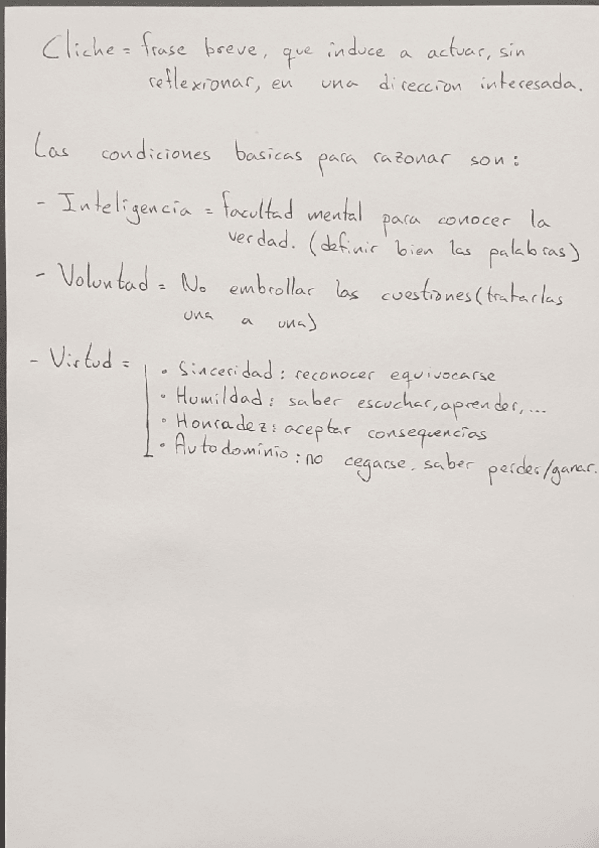 Cliche = frase breve, que induce a actuar, sin
reflexionar, en una direccion interesada.
Las condiciones basicas para razonar son:
- Inteligencia = facultad mental para conocer la
verdad. (definir bien las palabras)
- Voluntad = No embrollar las cuestiones (tratarlas
una a una)
- Virtud =
• Sinceridad: reconocer equivocarse
• Humildad: saber escuchar, aprender, ...
• Honradez: aceptar consequencias
• Autodominio: no cegarse. saber perder/ganar.